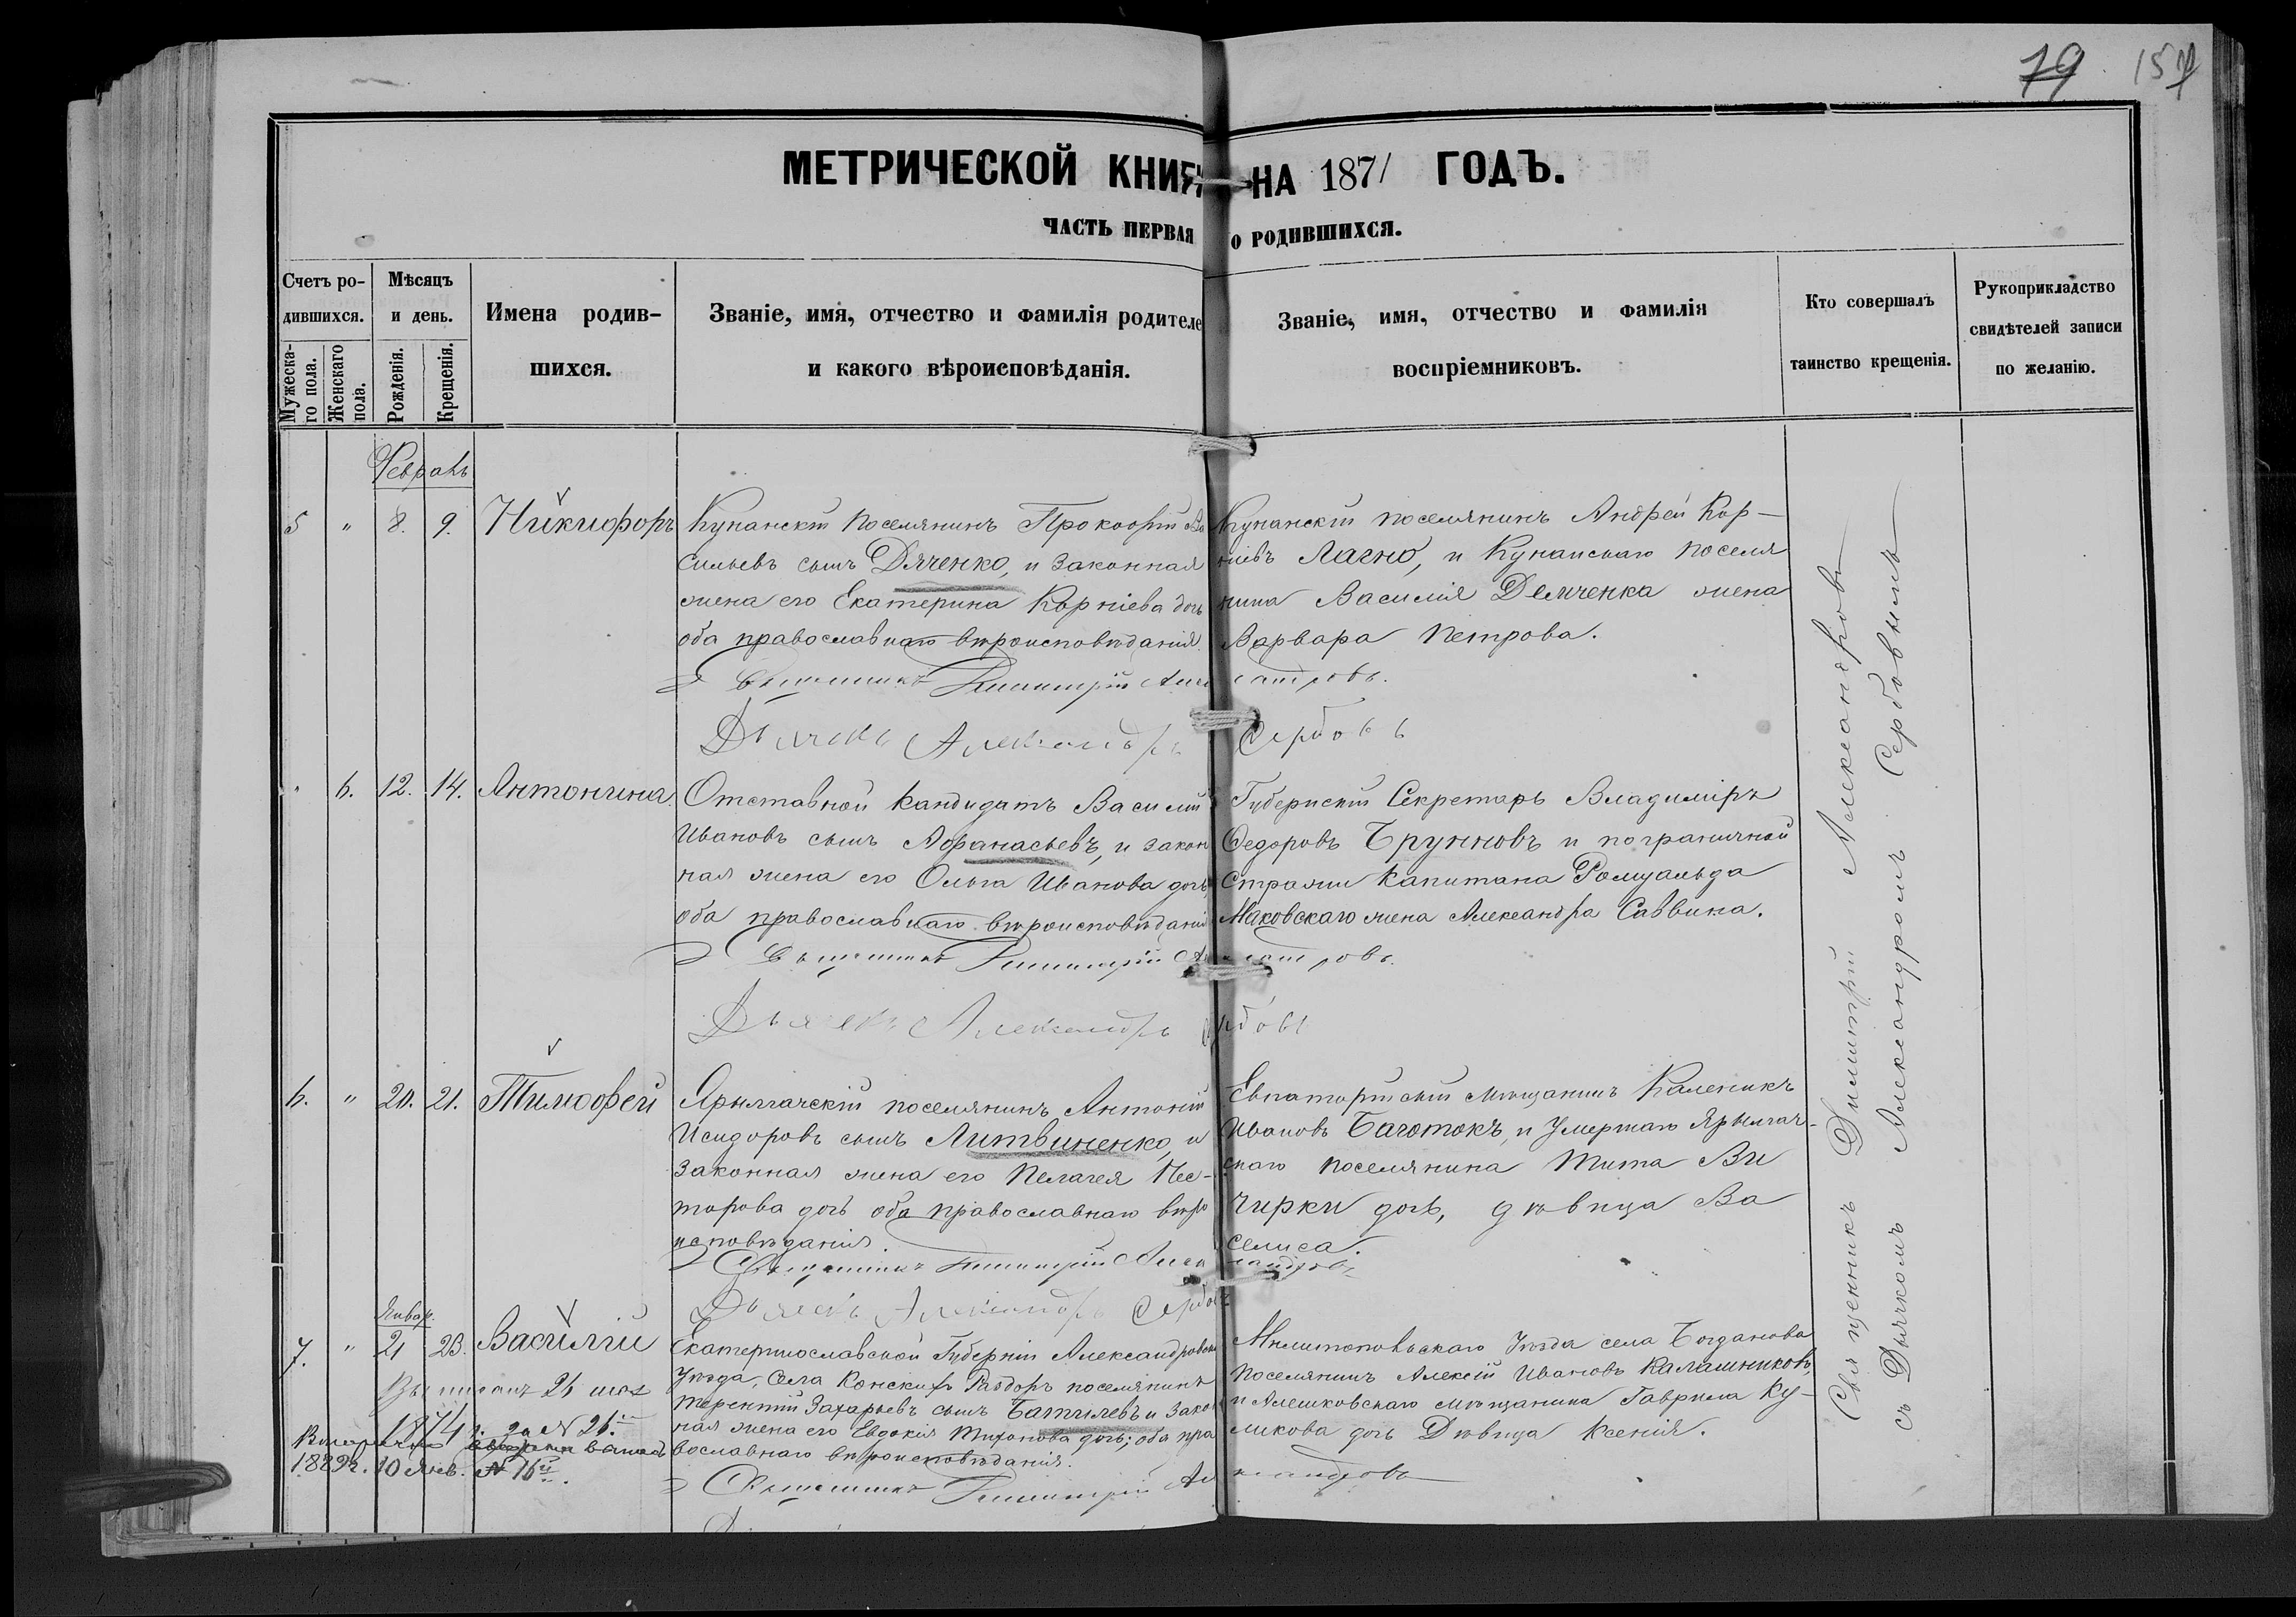 79 157
МЕТРИЧЕСКОЙ КНИГИ НА 1871 ГОДЪ.
ЧАСТЬ ПЕРВАЯ О РОДИВШИХСЯ.
Счетъ ро-
дившихся.
Мужеска-
го пола.
Женскаго
пола.
Мѣсяцъ
и день.
Рожденія.
Крещенія.
Имена родив-
шихся.
Званіе, имя, отчество и фамилія родителе
и какого вѣроисповѣданія.
Званіе, имя, отчество и фамилія
воспріемниковъ.
Кто совершалъ
таинство крещенія.
Рукоприкладство
свидѣтелей записи
по желанію.
Февраль
5 " 8. 9. Никифоръ
Кунанскій поселянинъ Прокофій Ва
сильевъ сынъ Дяченко, и законная
жена его Екатерина Корніева дочь
оба православнаго вѣроисповѣданія.
Кунанскій поселянинъ Андрей Кор-
ніевъ Лагно, и Кунанскаго поселя
нина Василія Демченка жена
Варвара Петрова.
Священникъ Димитрій Александровъ.
Дьячекъ Александръ Сербовъ
" 6. 12. 14. Антонина.
Отставной кандидатъ Василій
Ивановъ сынъ Афанасьевъ, и закон
ная жена его Ольга Иванова дочь,
оба православнаго вѣроисповѣданія
Губернскій Секретарь Владиміръ
Федоровъ Брунновъ и пограничной
Стражи Капитана Ромуальда
Маковскаго жена Александра Саввина.
Священникъ Димитрій Александровъ.
Дьячекъ Александръ Сербовъ
6. " 20. 21. Тимофей
Ярылгачскій поселянинъ Антоній
Исидоровъ сынъ Литвиненко, и
законная жена его Пелагея Нес-
торова дочь оба православнаго вѣро
исповѣданія.
Евпаторійскій мѣщанинъ Каленикъ
Ивановъ Баготокъ, и умершаго Ярылгач-
скаго поселянина Тита Ви
чирки дочь, дѣвица Ва
селиса.
Священникъ Димитрій Александровъ
Дьячекъ Александръ Сербовъ
Январ.
7. " 21 23. Василій
Екатеринославской Губерніи Александровска
Уѣзда, Села Конскихъ Раздоръ поселянинъ
Терентій Захарьевъ сынъ Батылевъ и закон
ная жена его Евдокія Тихонова дочь; оба пра
вославнаго вѣроисповѣданія.
Мелитопольскаго Уѣзда села Богданова
поселянинъ Алексій Ивановъ Калашниковъ,
и Алешковскаго мѣщанина Гаврила Ку-
ликова дочь Дѣвица Ксенія.
1874 г. за N 26.
1889 г. 10 Янв. N 16
Священникъ Димитрій Александровъ
Священникъ Димитрій Александровъ
съ Дьячкомъ Александромъ Сербовымъ